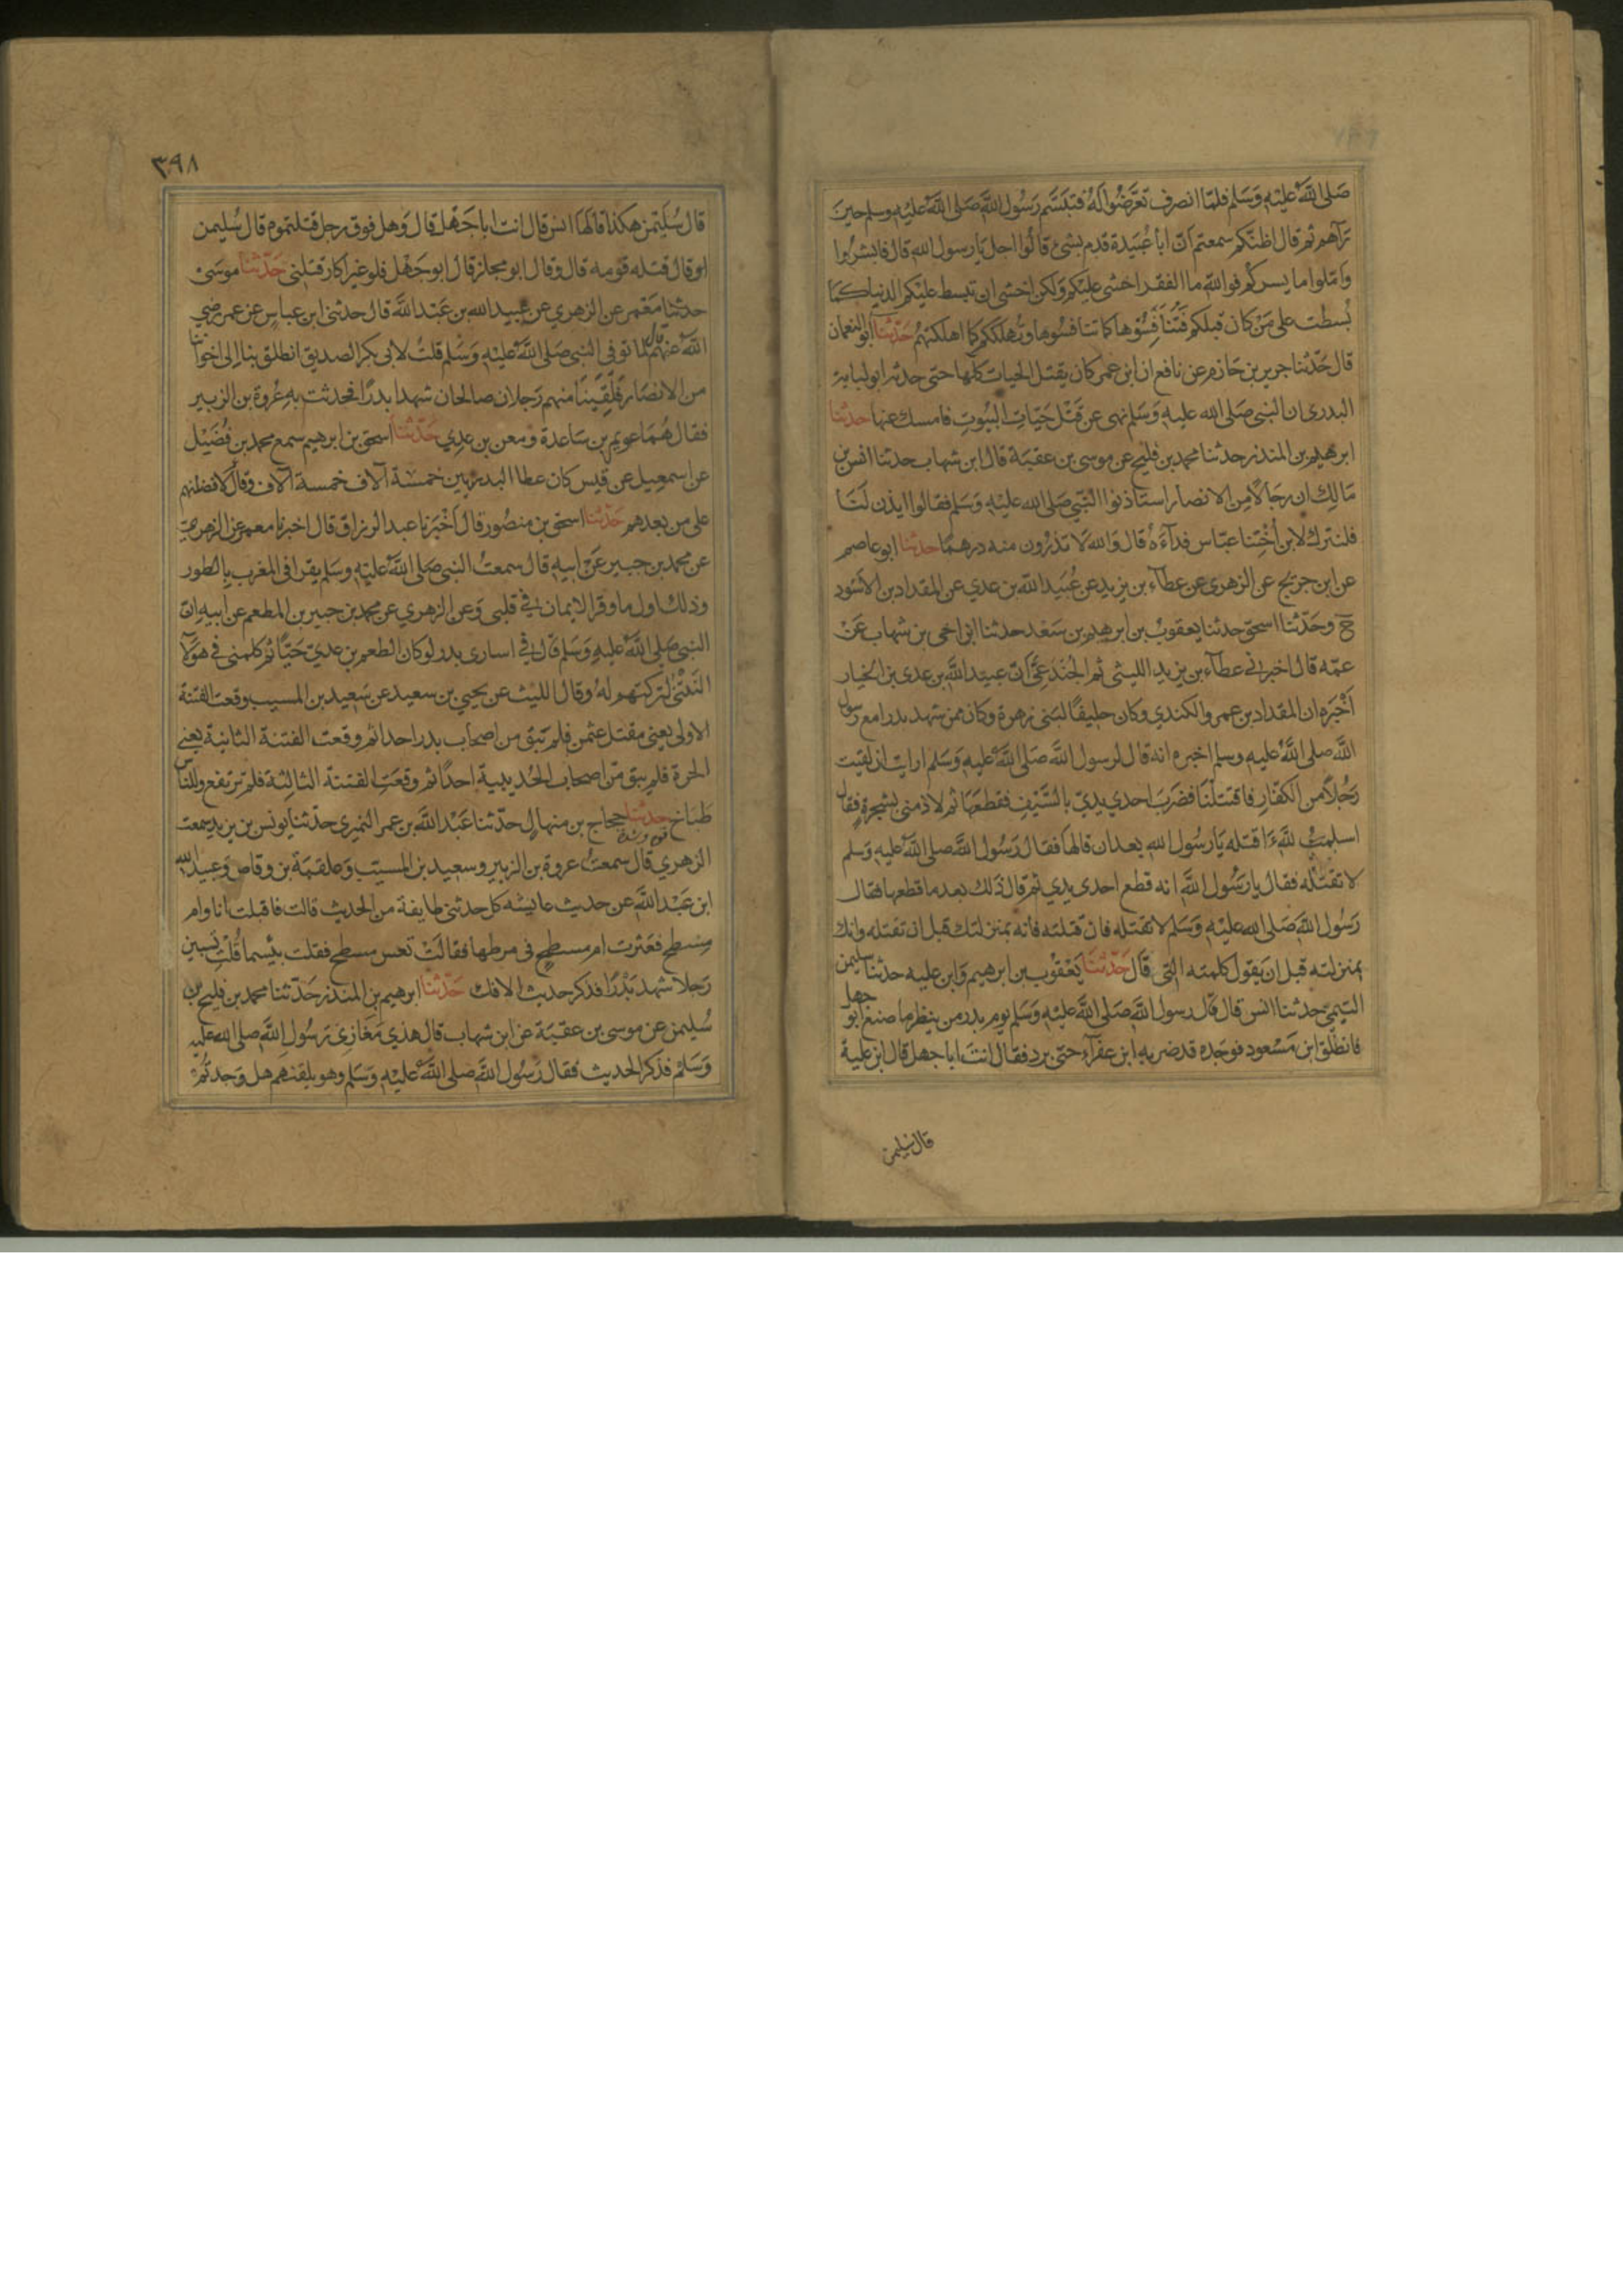 صَلى اللَّه عليْهِ وَسَلم فلمّا انصرف تعَرَّضُوا لَهُ فتبَسَّم رَسُول اللَّه صَلى اللَّه عليْهِ وسلم حين
رَآهم ثم قال اظنّكم سمعتم انّ ابا عُبَيدة قدم بشئ قالوا اجل يَا رسول الله قال فابشروا
وَامّلوا ما يسركم فوالله ما الفقر اخشى عليكم وَلكن اخشى ان تبسط عليكم الدنيا كما
بُسطت على مَن كان قبلكم فَتُنافِسُوها كما تنافسُوها وتُهلككم كما اهلكتهم حَدّثنا ابو النعمان
قال حَدّثنا جرير بن حَازم عن نافع ان ابن عمر كان يقتل الحيات كلها حتى حدثه ابو لبابة
البدرى ان النبى صَلى الله عليه وَسَلم نهى عن قتل حَيات البيُوتِ فامسك عنها حدثنا
ابرهيم بن المنذر حدثنا محمد بن فليح عن موسى بن عقبَة قال ابن شهاب حدثنا انس بن
مَالِك ان رجَالًا مِن الانصار استاذنوا النّبي صَلى الله عليْه وَسَلم فقالوا ايذن لنَا
فلنترك لابن أختِنا عبّاس فدآءَهُ قال وَالله لا تذرُون منه درهمًا حدثنا ابو عاصم
عن ابن جريج عن الزهرى عن عطآء بن يزيد عن عُبَيد الله بن عدي عن المقداد بن الاسْود
ح وحَدّثنا اسحق حدثنا يعقوبُ بن ابرهيم بن سَعْد حدثنا ابن اخى بن شهاب عَنْ
عمّه قال اخبرنى عطآء بن يزيد الليثى ثم الجُنْدَعِيّ انّ عبيد اللَّه بن عدى بن الخيار
أخْبَره ان المقداد بن عمرو الكندي وكان حليفًا لبَنى زهرة وكان ممن شهد بدرا مع رسول
اللَّه صلى اللَّه عليه وسلم اخبره انه قال لرسول اللَّه صَلى اللَّه عليْه وَسَلم ارايت ان لقيت
رَجُلًا من الكفّار فاقتتلْنَا فضَربَ احدى يديّ بالسَّيْف فقطعَهَا ثم لاذ منى بشجرةٍ فقال
اسلمتُ للَّه ءَاقتله يَا رسُول الله بعد ان قالها فقال رَسُول اللَّه صلى اللَّه عليه وَسلم
لا تقتله فقال يا رَسُول اللَّه انه قطع احدى يدي ثم قال ذلك بعد ما قطعها فقال
رَسُول اللَّه صَلى الله عليْه وَسَلم لا تقتله فان قتلته فانه بمنزلتك قبل ان تقتله وانك
بمنزلته قبل ان يقول كلمته التى قال حَدّثنَا يَعْقوُب بن ابرهيم وَابن عليه حدثنا سليمن
التيميّ حدثنا انس قال قال رسول اللَّه صَلى اللَّه عليه وَسَلم يوم بدر من ينظر ما صنع ابو جهل
فانطلق ابن مَسْعود فوجَده قد ضربه ابن عفرآء حتى برد فقال انتَ ابا جهل قال ابن علية
قال سليمن
٣٩٨
قال سُليَمن هكذا قالهَا انس قال انت ابا جَهْل قال وَهل فوق رجل قتلتموه قال سُليمن
او قال قتله قومه قال وقال ابو مجلز قال ابو جَهْل فلو غير اكار قتلنى حَدّثنا موسَى
حدثنا مَعْمر عن الزهري عن عبيد الله بن عَبْد اللَّه قال حدثنى ابن عباس عن عمر رضي
اللَّه عنهم قال لما توفى النبى صَلى اللَّه عليْهِ وَسَلم قلتُ لابى بكر الصديق انطلق بنا اِلى اخواننا
من الانصَار فَلَقِيَنَا منهم رَجلان صالحان شهدا بدرًا فحدثت بهِ عُروة بن الزبير
فقال هُمَا عويم بن سَاعدة ومعن بن عدِي حَدّثنا اسحق بن ابرهيم سمع محمد بن فُضَيْل
عن اسمعِيل عن قيس كان عطا البدريين خمسَة آلاف خمسة آلاف وقال لافضلنهم
على من بعدهم حَدّثنا اسحق بن منصُور قال أخْبرَنا عبد الرزاق قال اخبرنا معمر عن الزهريّ
عن محمد بن جبير عَنْ ابيهِ قال سمعتُ النبى صَلى اللَّه عليْهِ وسَلم يقرا فى المغرب بالطور
وذلك اول ما وقر الايمان في قلبى وَعن الزهري عن محمد بن جبير بن المطعم عن ابيه انّ
النبى صَلى اللَّه عليْهِ وَسَلم قال في اسارى بدر لو كان المطعم بن عدي حَيًّا ثم كلمنى في هؤلآ
النَّتْنَى لتركتهم لهُ وقال الليث عن يحيي بن سعيد عن سَعِيد بن المسيب وقعت الفتنة
الاولى يعنى مقتل عثمن فلم تبق من اصحاب بدر احدا ثم وقعت الفتنة الثانية يعني
الحرة فلم يبق من اصحاب الحُديبية احدًا ثم وقعَتِ الفتنة الثالثة فلم ترتفع وللناس
طَبَاخ حدثنا حجاج بن منهال حدّثنا عَبْد اللَّه بن عمر النميرى حدّثنا يونس بن يزيد سمعت
قوة وشدة
الزهري قال سمعتُ عروة بن الزبير وسعيد بن المسيّب وَعلقمة بن وقاص وَعبيد الله
ابن عَبْد اللَّه عن حديث عايشه كل حدثنى طايفة من الحديث قالت فاقبلت انا وام
مِسْطح فعَثرت ام مسطح فى مرطها فقالتْ تعس مسطح فقلت بيْسما قُلتِ تسبين
رَجلا شهد بَدْرًا فذكر حديث الافك حَدّثنا ابرهيم بن المنذر حَدّثنا محمد بن فليح بن
سُليمن عن موسى بن عقبَة عن ابن شهاب قال هذي مَغَازِى رَسُول اللَّه صلى الله عليه
وَسَلم فذكر الحديث فقال رَسُول اللَّه صَلى اللَّه عليْهِ وَسَلم وهو يلقنهم هل وَجدتُم